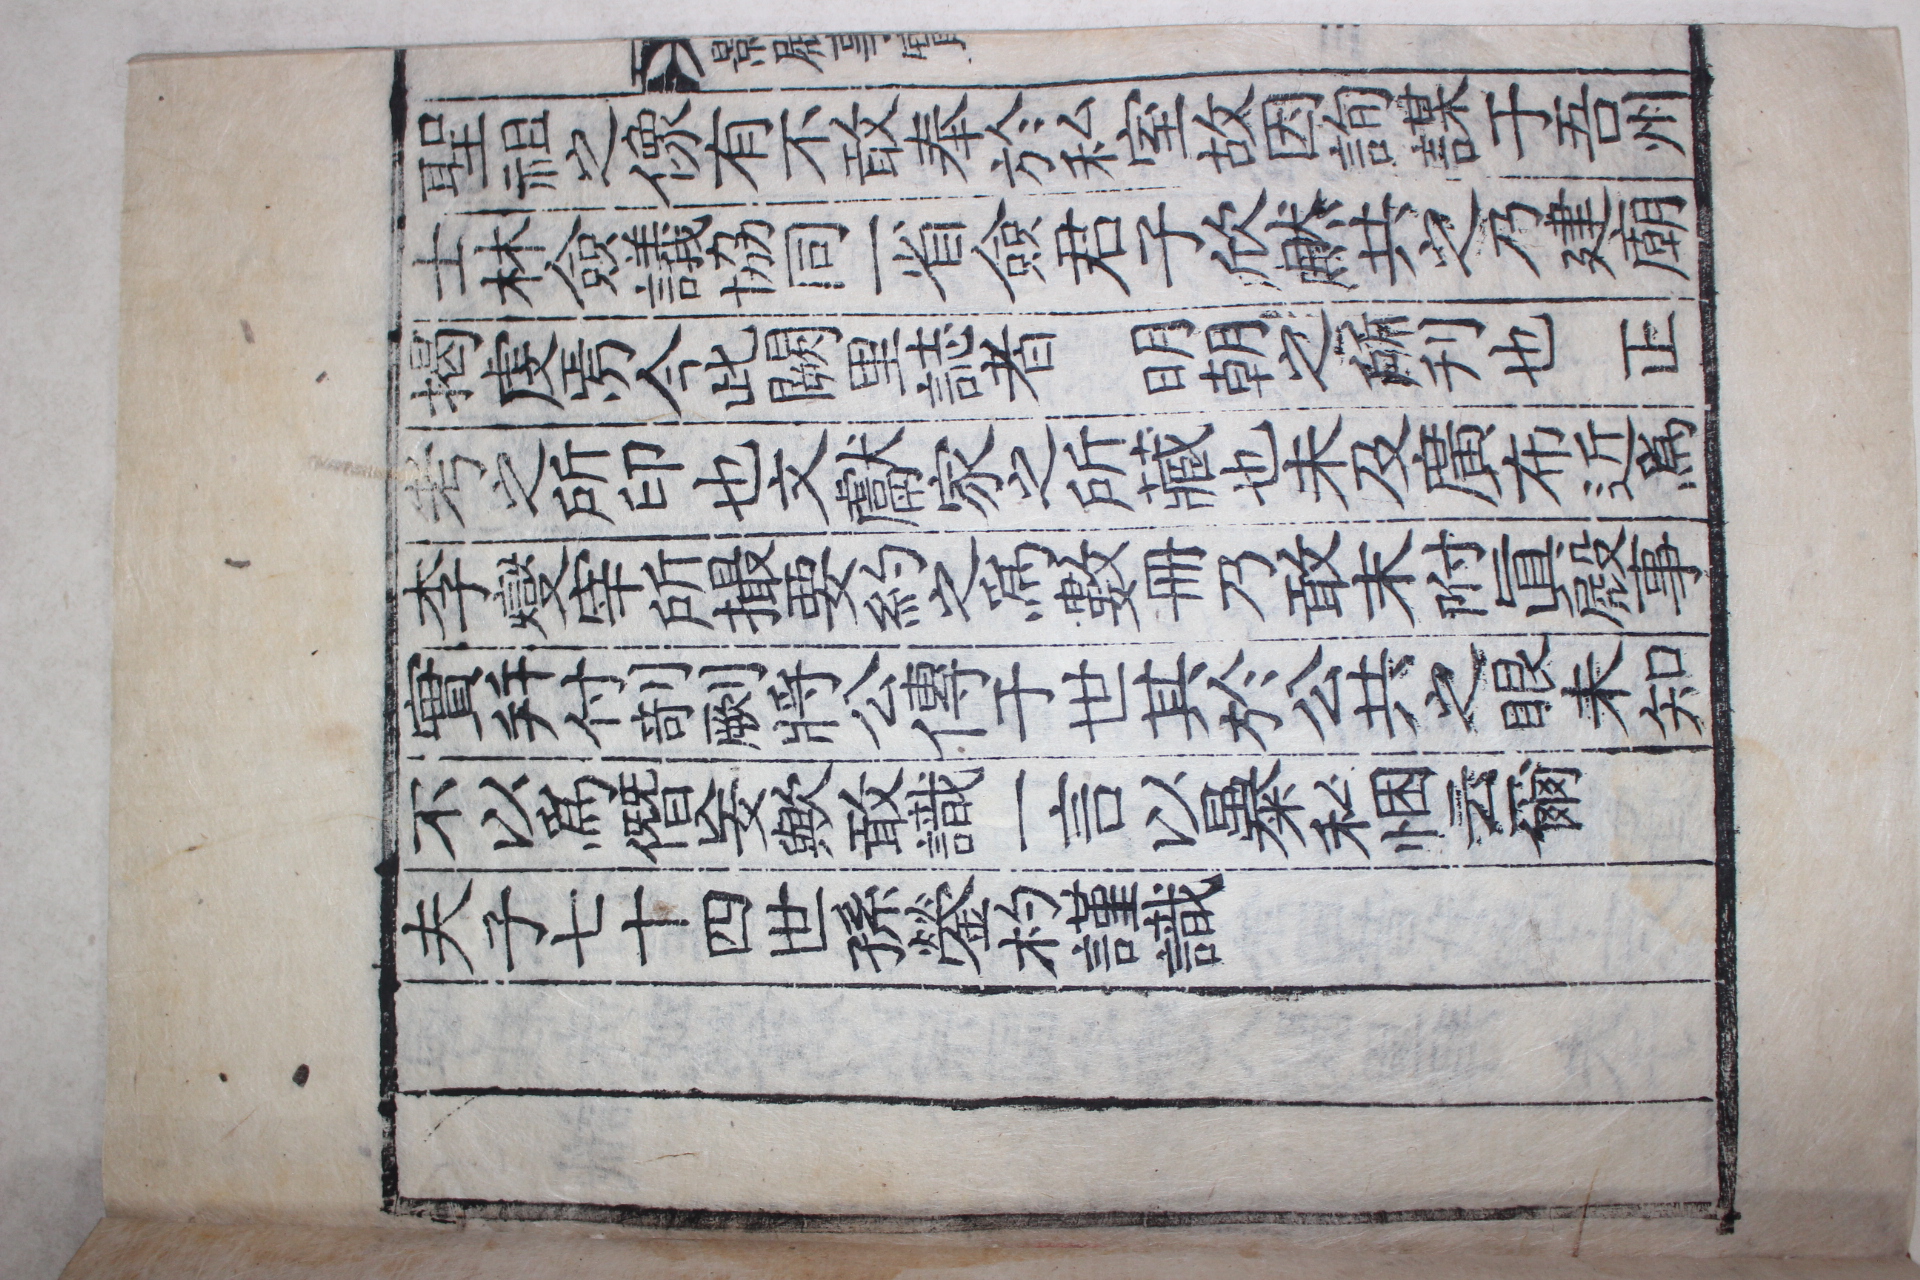 聖祖之像有不敢奉於私室故因詢謀于吾州
士林僉議協同一省僉君子欣然共之乃建廟
揭虔焉今此闕里誌者 明朝之所刊也 正
考之所印也文獻家之所藏也未及廣布近爲
李燮宰所撮要約之爲數冊乃敢末附眞殿事
實幷付剞劂將公傳于世其於公共之眼未知
不以爲僭妄歟敢識一言以暴私悃云爾
夫子七十四世孫鎣杓謹識
影殿事實